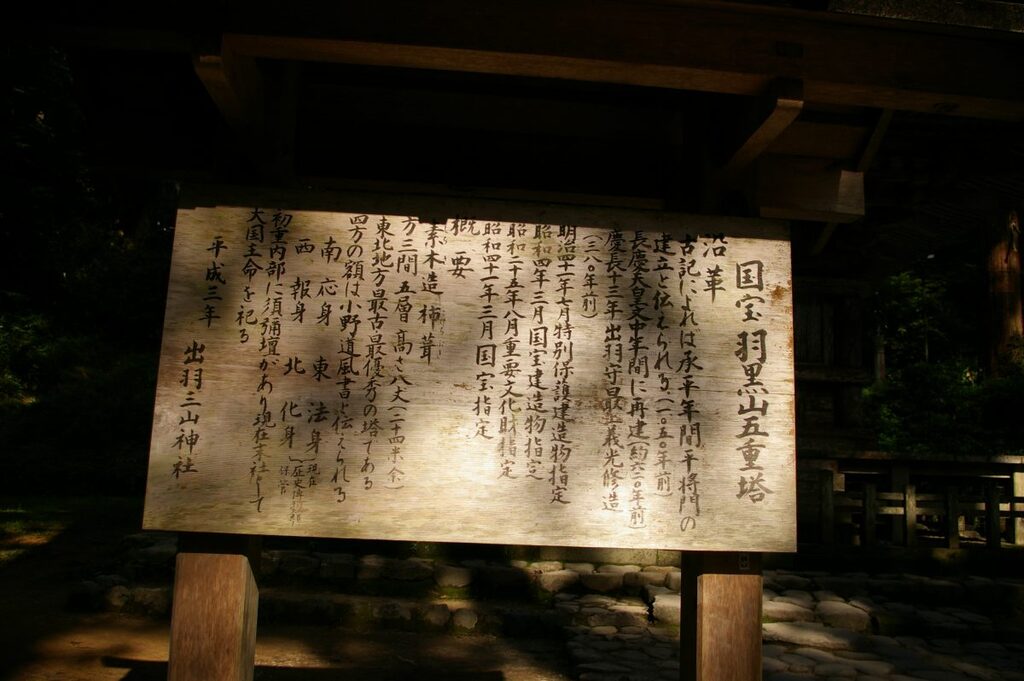 国宝 羽黒山五重塔
沿革
古記によれは承平年間平将門の
建立と伝えられる(一〇五〇年前)
長慶天皇文中年間に再建(約六〇〇年前)
慶長十三年出羽守最上義光修造
(三八〇年前)
明治四十一年七月特別保護建造物指定
昭和四年三月国宝建造物指定
昭和二十五年八月重要文化財指定
昭和四十一年三月国宝指定
概要
素木造 柿葺
方三間五層 高さ八丈(二十四米余)
東北地方最古最優秀の塔である
四方の額は小野道風書と伝えられる
南 応身 東 法身(現在歴史博物館保管)
西 報身 北 化身
初重内部に須彌壇があり現在末社として
大国主命を祀る
平成三年 出羽三山神社